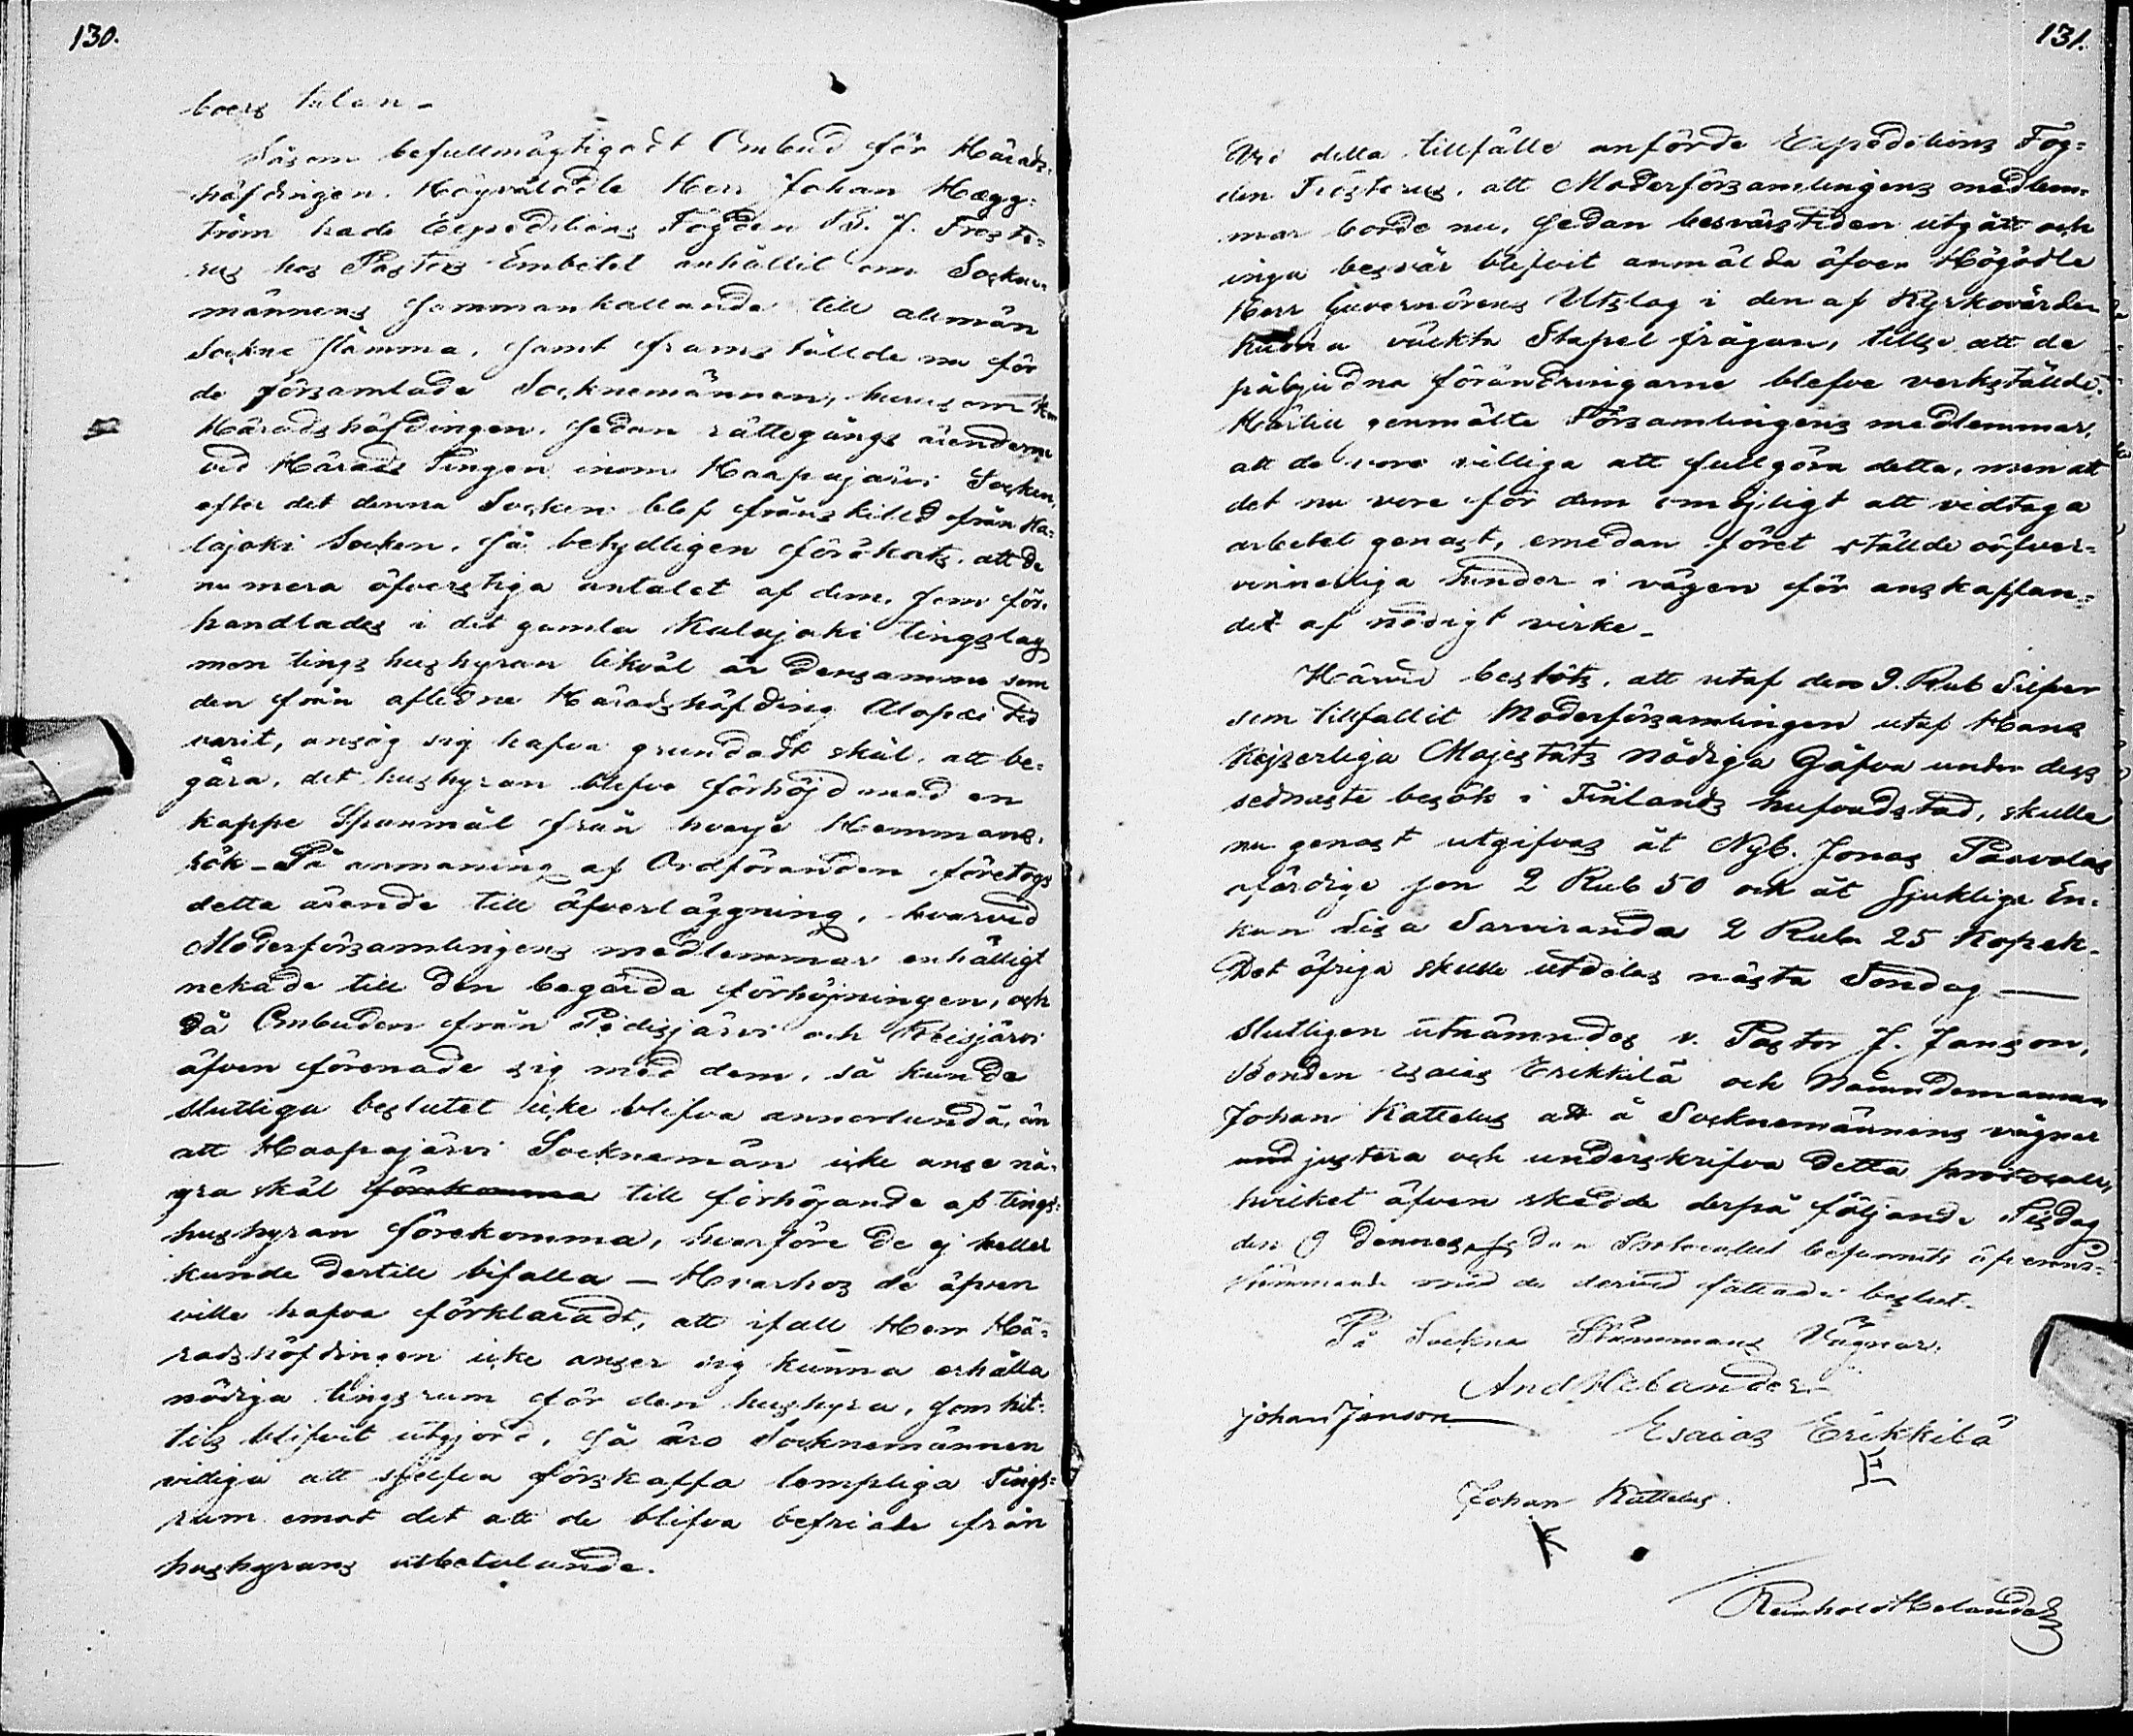 130.
boers talan -
Såsom befullmägtigadt Ombud för Härads-
höfdingen, Högvälädle Herr Johan Hægg-
tröm hade Expeditions Fogden J. Froste-
rus hos Pastors Embetet anhållit om Sockne-
männens sammankallande till allmän
Sockne stämma, samt framställde nu för
de församlade Socknemännen, hurusom Herr
Häradshöfdingen, sedan rättegångs ärenderne
vid Härads Tingen inom Haapajärvi Socken,
efter det denna Socken blef frånskilld från Ka-
lajoki Socken, så betydligen förökats, att de
numera öfverstiga antalet af dem, som för-
handlades i det gamla Kalajoki tingslag
men tings hushyran likväl är densamma som
den från aflidne Häradshöfding Alopæi tid
varit, ansåg sig hafva grundadt skäl, att be-
gära, det hushyran blefve förhöjd med en
kappe Spanmål från hvarje Hemmans-
rök - På anmaning af Ordföranden företogs
detta ärende till öfverläggning, hvarvid
Moderförsamlingens medlemmar enhälligt
nekade till den begärda förhöjningen, och
då Ombuden från Pidisjärvi och Reisjärvi
äfven förenade sig med dem, så kunde
slutliga beslutet icke blifva annorlunda, än
att Haapajärvi Socknemän icke anse nå-
gra skäl förekomma till förhöjande af tings-
hushyran förekomma, hvarföre de ej heller
kunde dertill bifalla - Hvarhos de äfven
ville hafva förklaradt, att ifall Herr Hä-
radshöfdingen icke anser sig kunna erhålla
nödiga tingsrum för den hushyra, som hit-
tils blifvit utgjord, så äro Socknemännen
villiga att sjelfva förskaffa lempliga Tings-
rum emot det att de blifva befriade från
hushyrans utbetalande.
131.
Vid detta tillfälle anförde Expeditions Fog-
den Frosterus, att Moderförsamlingens medlem-
mar borde nu, sedan besvärstiden utgått och
inga besvär blefvit anmälda öfver Högädle
Herr Guvernörens Utslag i den af Kyrkovärden
Kuona väckta Stapel frågan, tillse att de
påbjudna förändringarne blefve verkställde.
Härtill genmälte Församlingens medlemmar,
att de voro villiga att fullgöra detta, men att
det nu vore för dem omöjligt att vidtaga
arbetet genast, emedan föret ställde oöfver-
vinnerliga hinder i vägen för anskaffan-
det af nödigt virke -
Härvid beslöts, att utaf den 9. Rub Silfver
som tillfallit Moderförsamlingen utaf Hans
Kejserliga Majestäts nådiga Gåfva under dess
sednaste besök i Finlands hufvudstad, skulle
nu genast utgifvas åt Nyb. Jonas Paavolas
ofärdige son 2 Rub 50 och åt sjukliga En-
kan Lisa Sarviranda 2 Rub 25 Kopek -
Det öfriga skulle utdelas nästa Söndag —
Slutligen utnämndes v. Pastor J. Janson,
Bonden Esaias Erikkilä och Nämndemannen
Johan Kattelus att å Socknemännens vägnar
und justera och underskrifva detta protocoll,
hvilket äfven skedde derpå följande Tisdag
den 9 dennes, sedan Protocollet befunnits öfverens-
stämmande med de dervid fattade beslut.
På Sockne Stämmans Vägnar.
And Helander
Johan Janson
Esaias Erikkilä
E
Johan Kattelus.
K
Reinhold Helander